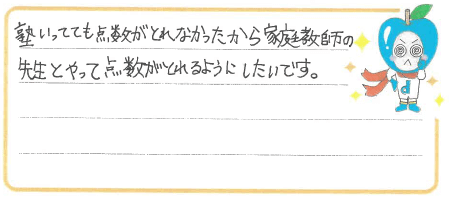 塾いってても点数がとれなかったから家庭教師の
先生とやって点数がとれるようにしたいです。
d